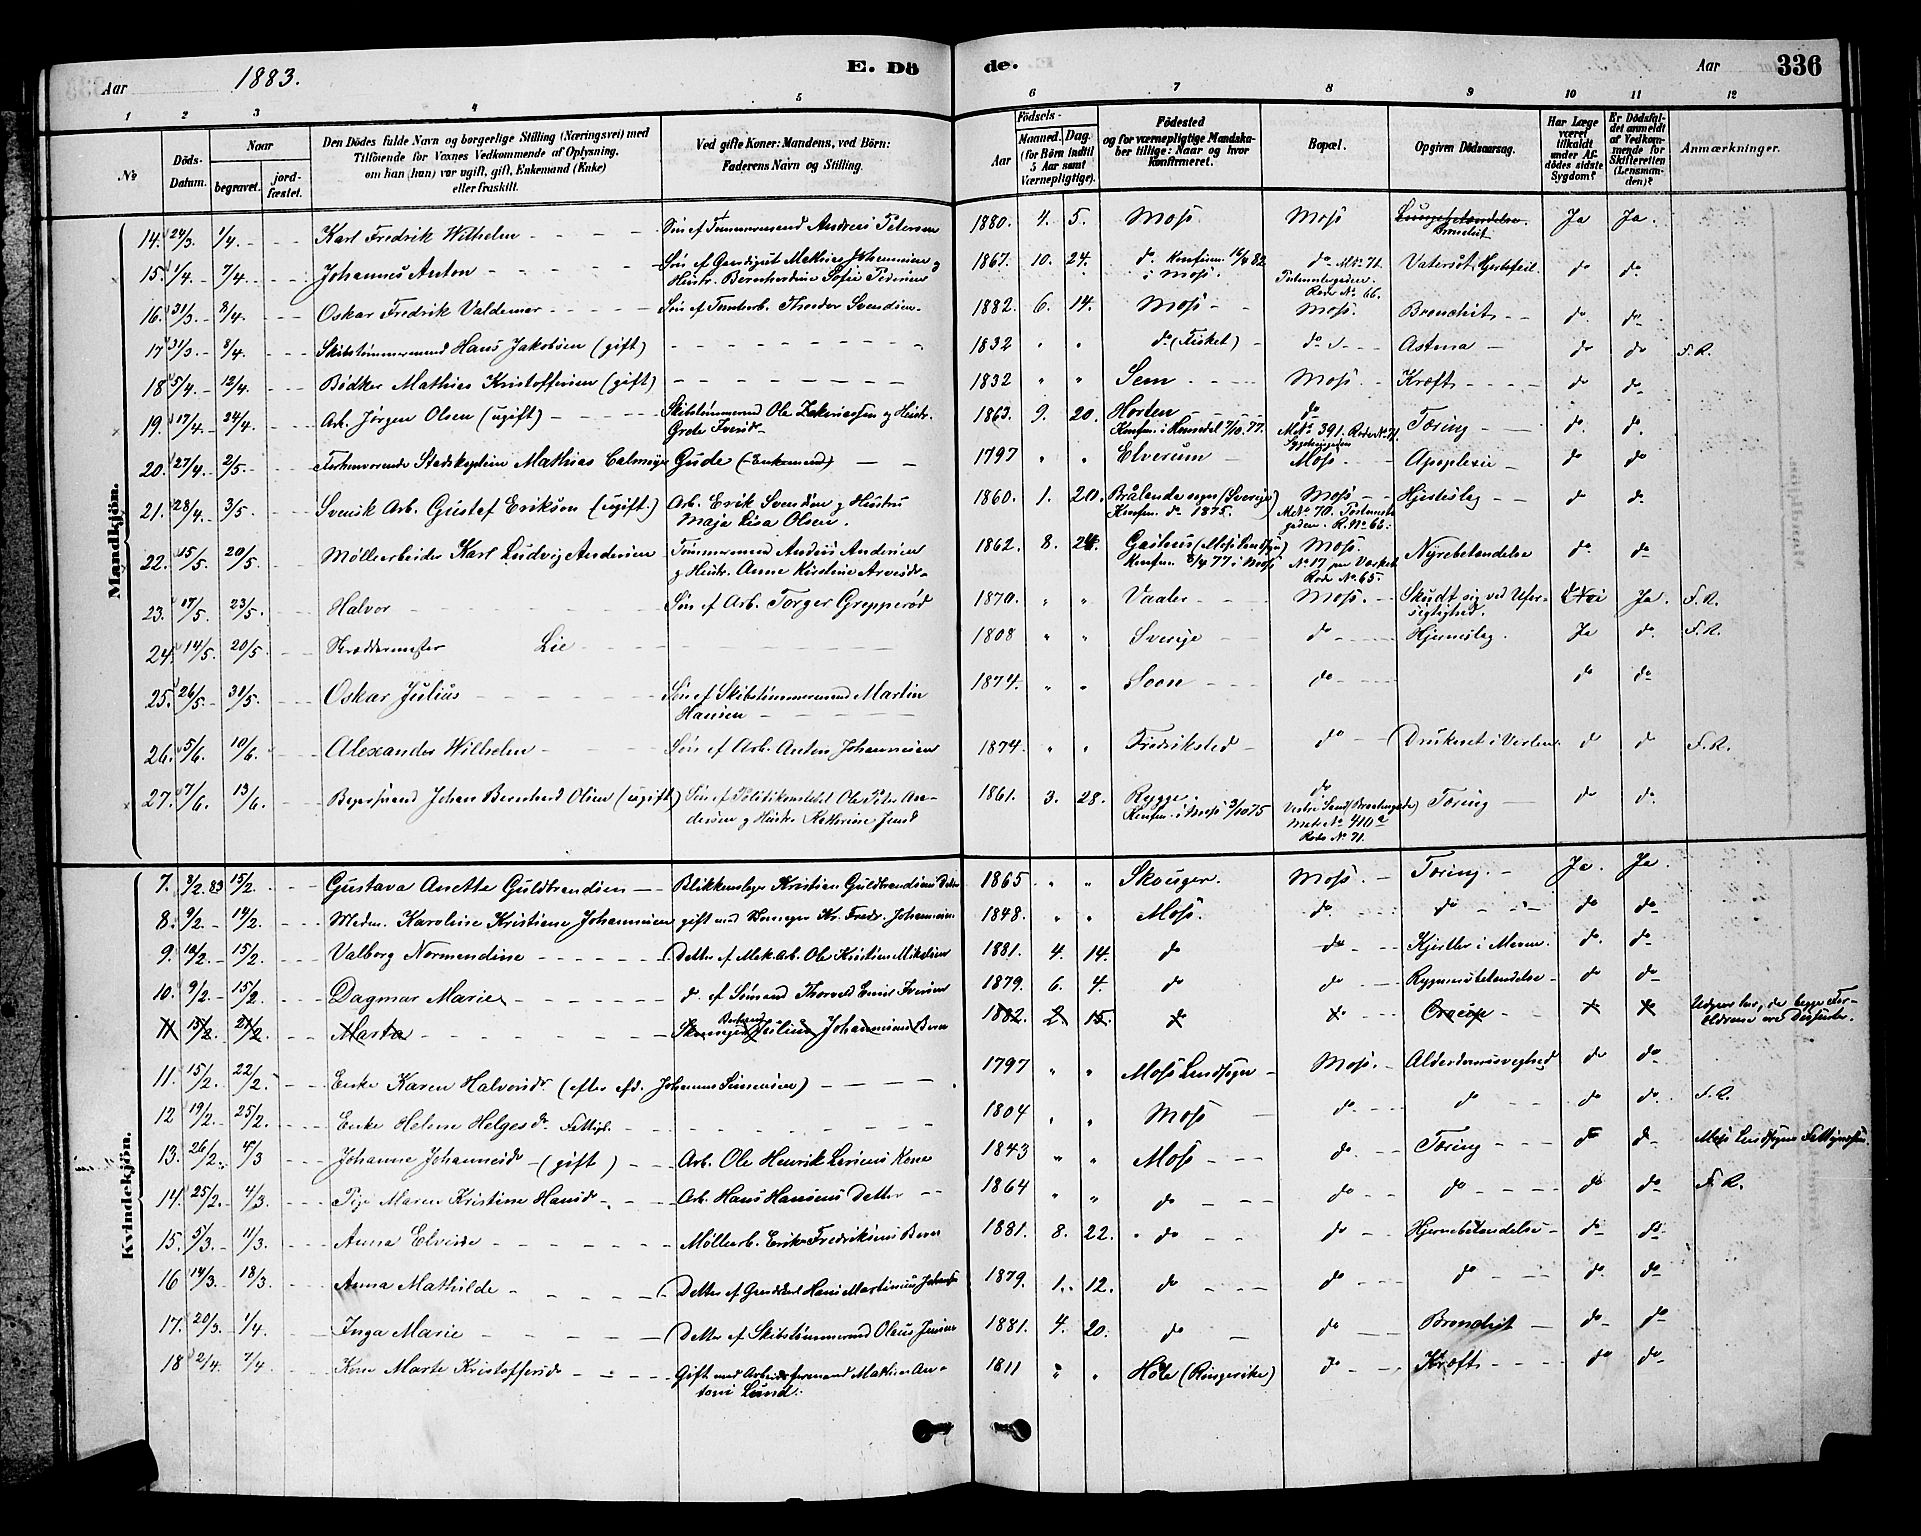 Aar 1883. E. Dö de. Aar 336
1 2 3 4 5 6 7 8 9 10 11 12
No Döds-Datum. Naar begravet. jord-fæstet. Den Dödes fulde Navn og borgerlige Stilling (Næringsvei) med Tilföiende for Voxnes Vedkommende af Oplysning, om han (hun) var ugift, gift, Enkemand (Enke) eller fraskilt. Ved gifte Koner: Mandens, ved Börn: Faderens Navn og Stilling. Aar Födsels- Maaned. Dag. (for Börn indtil 5 Aar samt Værnepligtige). Födested og for værnepligtige Mandskaber tillige: Naar og hvor konfirmeret. Bopæl. Opgiven Dödsaarsag. Har Læge været tilkaldt under Afdödes sidste Sygdom? Er Dödsfaldet anmeldt af Vedkommende for Skifteretten (Lensmanden)? Anmærkninger.
Mandkjön.
14. 24/3. 1/4. Karl Fredrik Wilhelm Sön ef Tömmermand Andreas Petersen 1880. 4. 5. Moss Moss Lungebetændelse Bronchit Ja Ja.
15. 1/4. 7/4. Johannes Anton Sön ef Gaardsgut Mathias Johannesen og Hustr. Bernhardine Sofie 1867. 10. 24. do. Konfirm. i Moss. do M.No 71. Rode No. 66. Vatersot, Hjertefeil. do do
16. 31/3. 8/4. Oskar Fredrik Valdemar Sön ef Tomtearb. Theodor Svendsen. 1882. 6. 14. Moss Moss. Bronchit do do
17 31/3. 8/4. Skibstömmermand Hans Jakobsen (gift) 1832 " " do (Fisket) do Astma do do F.R.
18 5/4. 12/4. Bödker Mathias Kristoffersen (gift) 1832 " " Sem Moss. Kræft do do
19. 17/4. 24/4. Arb. Jörgen Olsen (ugift) Skibstömmermd Ole Zakariassen og Hustr. Grete Iversd. 1863. 9. 20. Horten Konfirm. i 7/10.77. do M.No. 391. Rode No 71. Tæring do. do.
20. 27/4. 2/5. Forhenværende Stadskaptein Mathias Calmeyer Gude (Enkemand) 1797 " " Elverum Moss. Apoplexie do do
21. 28/4. 3/5. Svensk Arb. Gustaf Erikson (ugift.) Arb. Erik Svendsen og Hustru Maja Lisa Olsen. 1860. 1. 20. Brålanda sogn (Sverige) Konfirm. do 1875. Moss M.No. 70. R.No 66. Hjerteslag do do.
22. 15/5. 20/5. Möllearbeider Karl Ludvig Andersen Tömmermand Anders Andersen og Hustr. Anne Kirstine Arvesd. 1862. 8. 24. (Moss Landsogn) Konfirm. 8/4 77 i Moss Moss. No 17 paa Værket Rode No. 65. Nyrebetændelse do. do
23. 17/5. 23/5. Halvor Sön ef Arb. Torger Grepperöd 1870. " " Vaaler Moss. Skudt sig ved Uforsigtighed. Nei Ja. F.R.
24. 14/5. 20/5. Skræddermester Lie 1808 " " Sverige do Hjerneslag. Ja do. F.R.
25. 26/5. 30/5. Oskar Julius Sön ef Skibstömmermand Martin Hansen 1874. " " Soon do do do
26. 5/6. 10/6. Alexander Wilhelm Sön ef Arb. Anton Johannesen 1874. " " Fredriksted do Druknet i Verlen. do do F.R.
27. 7/6. 13/6. Johan Bernhard Olsen (ugift) Sön ef Politikonstabel Ole Peter Andersen og Hustr. Kathrine 1861. 3. 28. Rygge. Konfirm. i Moss 3/10 75 do Matr No 410 a Rode No 71. Tæring do do
Kvindekjön.
7. 8/2. 83 15/2. Gustava Anette Guldbrandsen Blikkenslager Kristian Guldbrandsens Datter 1865 " " Skouger. Moss. Tæring. Ja. Ja.
8. 9/2. 14/2. Madm. Karoline Kristiane Johannesen gift med Kr. Fredr. Johannesen 1848. " " Moss. do. do do do
9. 10/2. 15/2. Valborg Normandine Datter ef Mek.Arb. Ole Kristian Mikelsen 1881. 4. 14. do do Kjertler i Maven. do. do
10. 9/2. 15/2. Dagmar Marie d. ef Sömand Thorvald Iversen 1879. 6. 4. do do Rygmarvsbetændelse do do
11 15/2. 21/2. Marta Julius Johannesens Barn 1882. 2. 15. do do. Croup Udgaar her, da begge Forældrene ere Dissentere.
11. 15/2. 22/2. Enke Karen Halvorsdr (efter afd. Johannes Simensen) 1797 " " Moss Landsogn Moss. Alderdomssvaghed do do
12 19/2. 25/2. Enke Helene Helgesdr Fattigl. 1804 " " Moss do do do do. F.R.
13. 26/2. 4/3 Johanne Johannesdr (gift) Arb. Ole Henrik Larsens Kone 1843 " " Moss do. Tæring do do Moss Landsogns
14. 25/2. 4/3. Pige Maren Kristine Hansdr Arb. Hans Hansens Datter 1864 " " do do do do do F.R.
15. 5/3. 11/3. Anna Elvine Möllearb. Erik Fredriksens Barn 1881. 8. 22. do do Hjernebetændelse do do
16 14/3. 18/3. Anna Mathilde Datter ef Hans Martinius 1879. 1. 12. do do do do. do
17. 20/3. 1/4. Inga Marie Datter ef Skibstömmermand Olaus Jensen 1881. 4. 20. do do Bronchit do do
18 2/4. 7/4. Kone Marte Kristoffersdr Gift med Arbeidsformand Mathias Antoni Lund. 1811 " " Hole (Ringerike) do Kræft do do